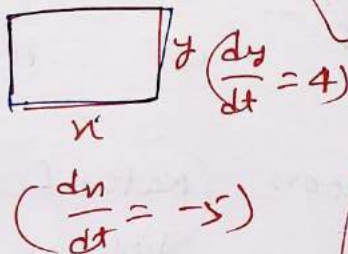 y (dy/dt = 4)
x
(dx/dt = -5)